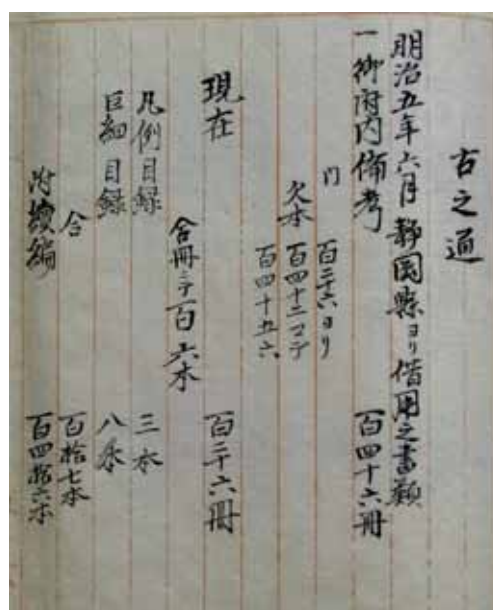 古之通
明治五年六月静岡縣ヨリ借用之書類
一御府内備考 百四十六冊
内 百二十六ヨリ
欠本 百四十二マデ
百四十五六
現在 百二十六冊
合冊ニテ百六本
凡例目録 三本
巨細目録 八本
合 百拾七本
附續編 百四拾六本